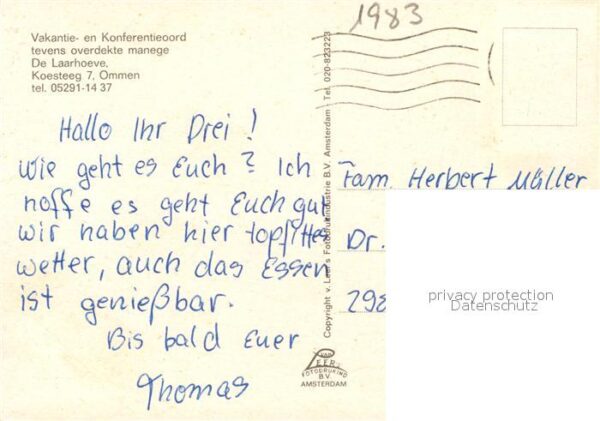 1983
Vakantie- en Konferentieoord
tevens overdekte manege
De Laarhoeve,
Koesteeg 7, Ommen
tel. 05291-14 37
Hallo Ihr Drei !
Wie geht es Euch? Ich
hoffe es geht Euch gut
wir haben hier topfittes
Wetter, auch das Essen
ist genießbar.
Bis bald Euer
Thomas
Copyright v. Leer's Fotodrukindustrie B.V. Amsterdam - Tel. 020-823223
Fam. Herbert Müller
Dr.
298
privacy protection
Datenschutz
VAN
LEER's
FOTODRUKIND
B.V.
AMSTERDAM